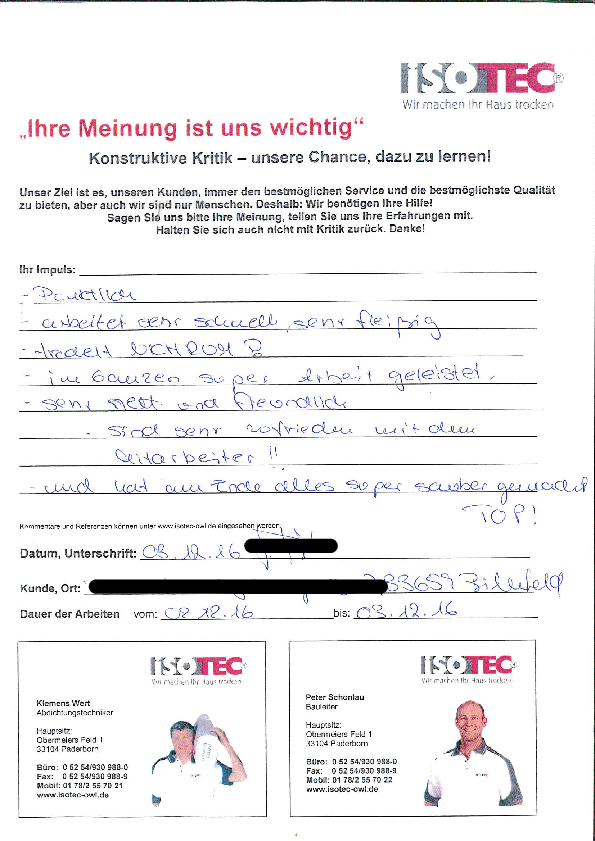 ISOTEC®
Wir machen Ihr Haus trocken
„Ihre Meinung ist uns wichtig“
Konstruktive Kritik – unsere Chance, dazu zu lernen!
Unser Ziel ist es, unseren Kunden, immer den bestmöglichen Service und die bestmöglichste Qualität
zu bieten, aber auch wir sind nur Menschen. Deshalb: Wir benötigen Ihre Hilfe!
Sagen Sie uns bitte Ihre Meinung, teilen Sie uns Ihre Erfahrungen mit.
Halten Sie sich auch nicht mit Kritik zurück. Danke!
Ihr Impuls:
- Pünktlich
- arbeitet sehr schnell, sehr fleißig
- im Ganzen super Arbeit geleistet.
- sehr nett und freundlich
- sind sehr zufrieden mit dem
Mitarbeiter !!
- und hat am Ende alles super sauber gemacht
TOP!
Kommentare und Referenzen können unter www.isotec-owl.de eingesehen werden
Datum, Unterschrift: 03.12.16
Kunde, Ort: 33659 Bielefeld
Dauer der Arbeiten vom: 02.12.16 bis: 03.12.16
ISOTEC®
Wir machen Ihr Haus trocken
Klemens Wert
Abdichtungstechniker
Hauptsitz:
Obermeiers Feld 1
33104 Paderborn
Büro: 0 52 54/930 988-0
Fax: 0 52 54/930 988-9
Mobil: 01 78/2 55 70 21
www.isotec-owl.de
ISOTEC®
Wir machen Ihr Haus trocken
Peter Schonlau
Bauleiter
Hauptsitz:
Obermeiers Feld 1
33104 Paderborn
Büro: 0 52 54/930 988-0
Fax: 0 52 54/930 988-9
Mobil: 01 78/2 55 70 22
www.isotec-owl.de